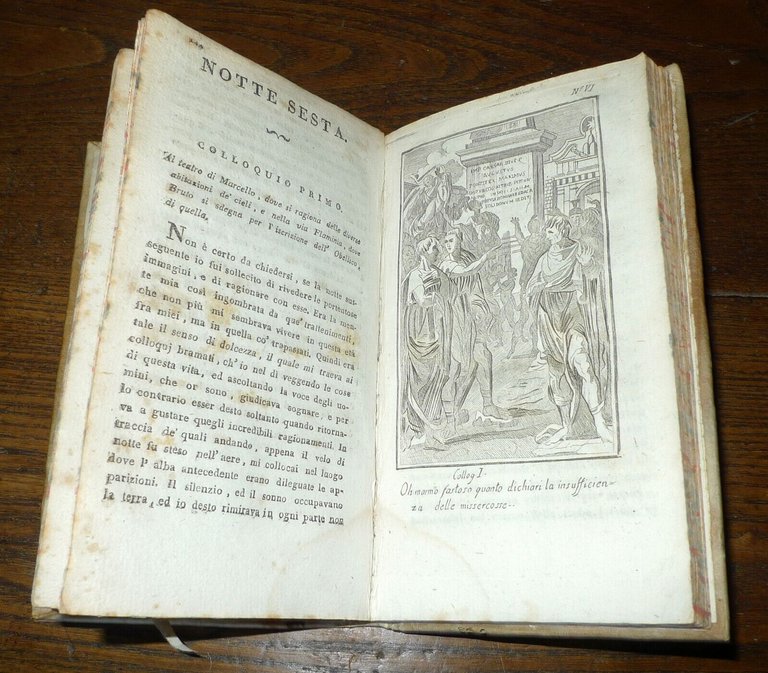 NOTTE SESTA.
COLLOQUIO PRIMO.
Al teatro di Marcello, dove si ragiona delle diverse
abitazioni de' cieli, e nella via Flaminia, dove
Bruto si sdegna per l'iscrizione dell' Obelisco
di quella.
Non è certo da chiedersi, se la notte sus-
seguente io fui sollecito di rivedere le portentose
immagini, e di ragionare con esse. Era la men-
te mia così ingombrata da que' trattenimenti,
che non più mi sembrava vivere in questa età
fra miei, ma in quella co' trapassati. Quindi era
tale il senso di dolcezza, il quale mi traeva ai
colloquj bramati, ch' io nel di veggendo le cose
di questa vita, ed ascoltando la voce degli uo-
mini, che or sono, giudicava sognare, e per
lo contrario esser desto soltanto quando ritorna-
va a gustare quegli incredibili ragionamenti. In
traccia de' quali andando, appena il velo di
notte fu steso nell' aere, mi collocai nel luogo
dove l' alba antecedente erano dileguate le ap-
parizioni. Il silenzio, ed il sonno occupavano
la terra, ed io desto rimirava in ogni parte non
N.º VI
IMP. CAESAR DIVI F
AUGUSTUS
PONTIFEX MAXIMUS
Colloq I.
Oh marmo fastoso quanto dichiari la insufficien-
za delle missercosse..